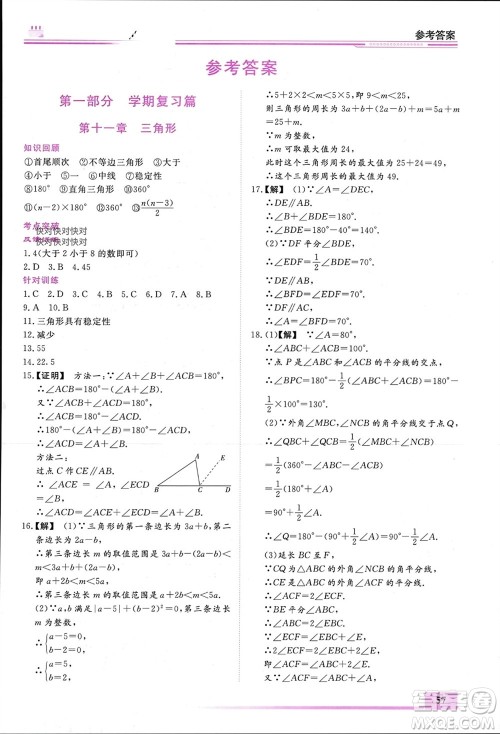 参考答案
参考答案
第一部分 学期复习篇
第十一章 三角形
知识回顾
①首尾顺次 ②不等边三角形 ③大于
④小于 ⑤一 ⑥中线 ⑦稳定性
⑧180° ⑨180° ⑩360°
⑪(n-2)×180° ⑫n(n-3)/2
考点突破
快对快对快对
快对快对快对
1.4(大于2小于8的数即可)
2.D 3.B 4.45
针对训练
1.C 2.D 3.C 4.C 5.C 6.B 7.B 8.B
9.A 10.D
11.三角形具有稳定性
12.>
13.55
14.22.5
15.【证明】 方法一:∵∠A+∠B+∠ACB=180°,
∴∠ACB=180°-(∠A+∠B).
又∵∠ACD=180°-∠ACB,
∴∠ACD=180°-[180°-(∠A+∠B)],
∴∠ACD=∠A+∠B.
方法二:
过点C作CE∥AB,
∴∠ACE=∠A,
∠ECD=∠B,
∴∠ACD=∠ACE+
∠ECD=∠A+∠B.
A
E
B
C
D
16.【解】 (1)∵三角形的第一条边长为3a+b,第二条边长为2a-b,
∴第三条边长m的取值范围是3a+b-(2a-b)<m<3a+b+2a-b,
即a+2b<m<5a,
∴第三条边长m的取值范围是a+2b<m<5a.
(2)∵a,b满足|a-5|+(b-2)²=0,第三条边长m为整数,
∴{a-5=0,
b-2=0,
∴{a=5,
b=2,
∴5+2×2<m<5×5,即9<m<25,
则三角形的周长为3a+b+(2a-b)+m=5a+m=25+m.
∵m为整数,
∴m可取最大值为24,
此时这个三角形周长的最大值为25+24=49,
∴三角形的周长的最大值为49.
17.【解】 (1)∵∠A=∠DEC,
∴DE∥AB,
∴∠D+∠BFD=180°.
(2)∵DF平分∠BDE,
∴∠EDF=1/2∠BDE=1/2×140°=70°.
∵DE∥AB,
∴∠BFD=∠EDF=70°.
18.(1)【解】 ∵∠A=80°,
∴∠ABC+∠ACB=100°.
∵点P是∠ABC和∠ACB的平分线的交点,
∴∠BPC=180°-1/2(∠ABC+∠ACB)=180°-
1/2×100°=130°.
(2)∵外角∠MBC,∠NCB的平分线交于点Q,
∴∠QBC+∠QCB=1/2(∠MBC+∠NCB)
=1/2(360°-∠ABC-∠ACB)
=1/2(180°+∠A)
=90°+1/2∠A,
∴∠Q=180°-(90°+1/2∠A)=90°-1/2∠A.
(3)延长BC至F,
∵CQ为△ABC的外角∠NCB的平分线,
∴CE是△ABC的外角∠ACF的平分线,
∴∠ACF=2∠ECF.
∵BE平分∠ABC,
∴∠ABC=2∠EBC.
∵∠ECF=∠EBC+∠E,
∴2∠ECF=2∠EBC+2∠E,
即∠ACF=∠ABC+2∠E.
又∵∠ACF=∠ABC+∠A,